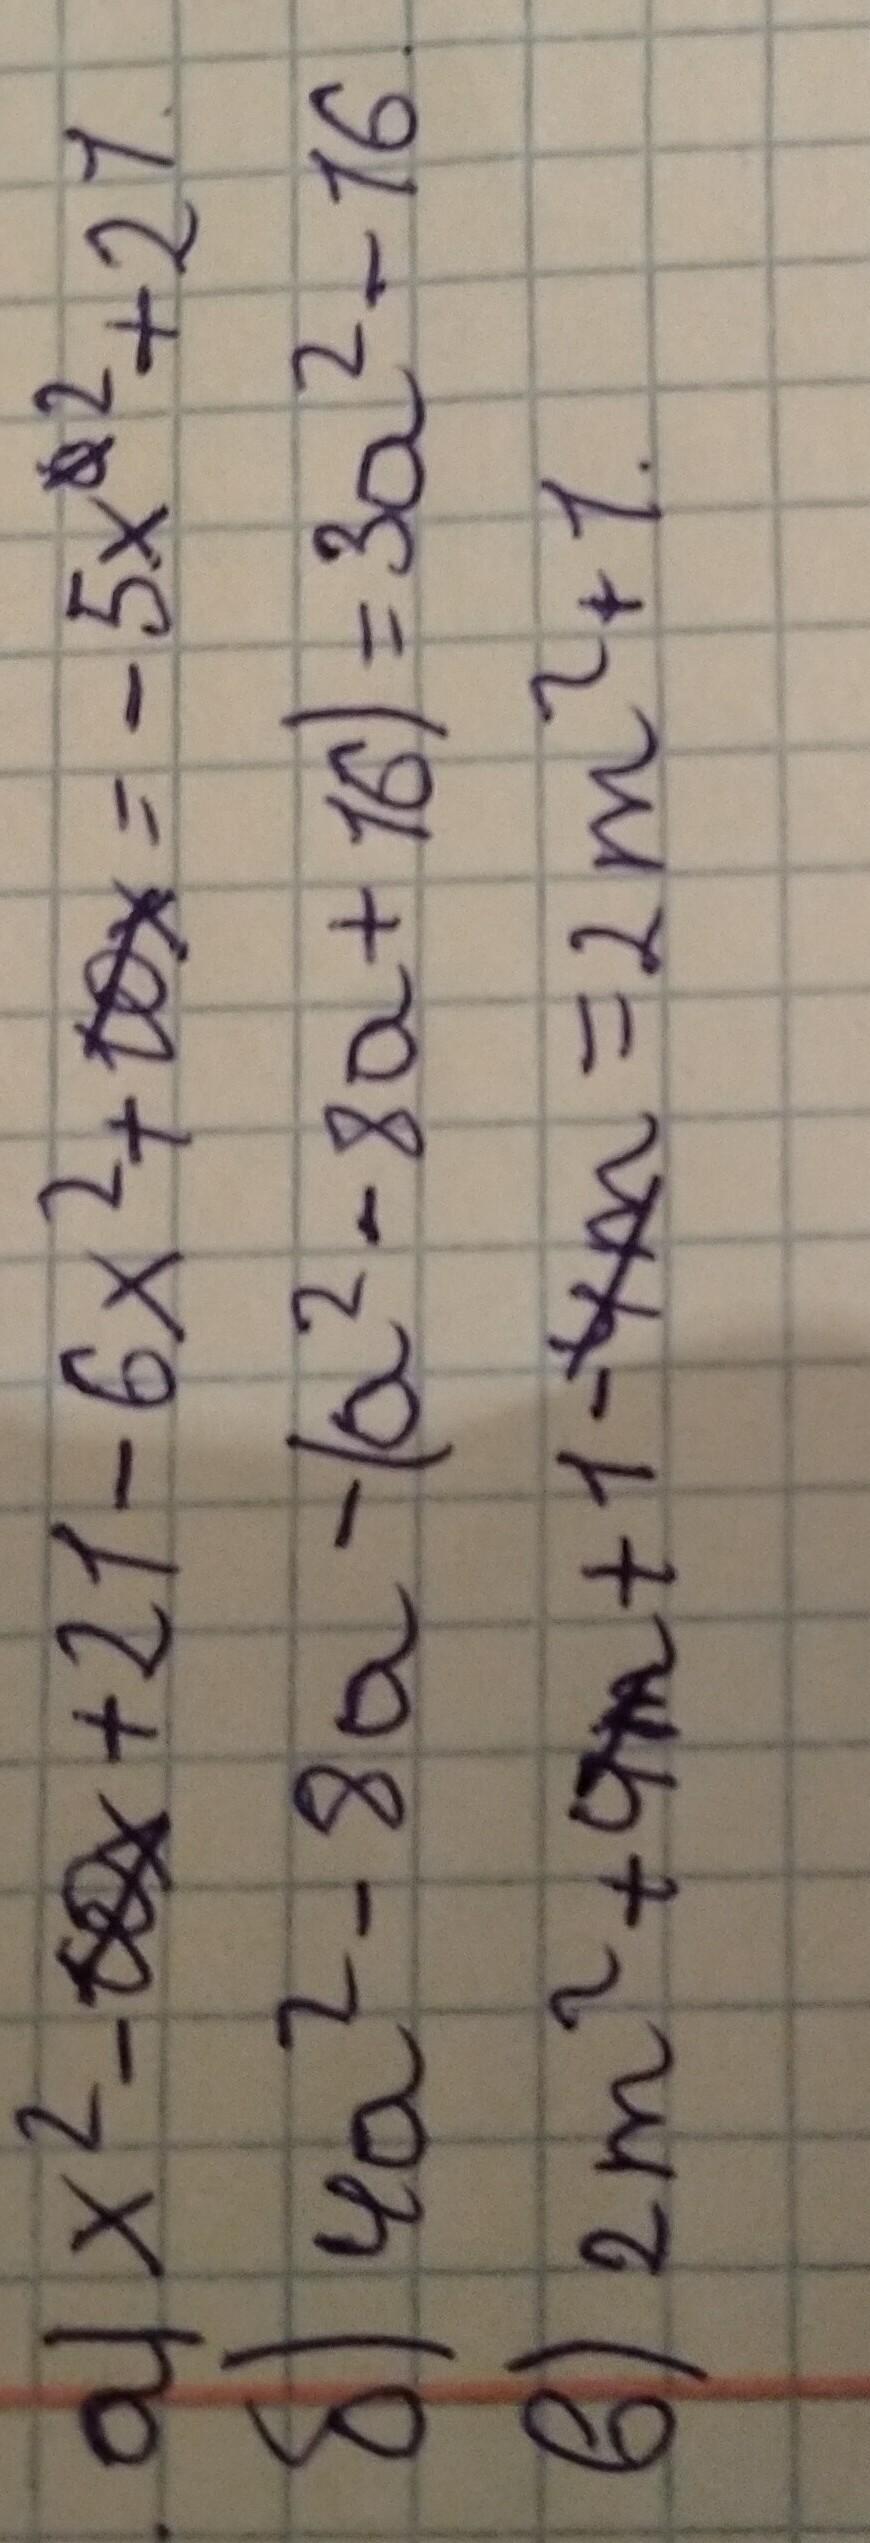 а) x² - 10x + 21 - 6x² + 10x = - 5x² + 21.
б) 4a² - 8a - (a² - 8a + 16) = 3a² - 16.
в) 2m² + 4m + 1 - 4m = 2m² + 1.